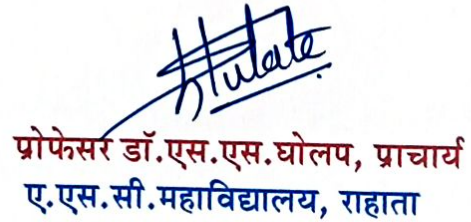 प्रोफेसर डॉ.एस.एस.घोलप, प्राचार्य
ए.एस.सी.महाविद्यालय, राहाता